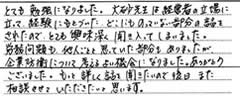 とても勉強になりました。大砂先生は経営者の立場に
立って、経験にもとづいた どこにものってない部分は話を
されたので とても興味深く聞き入ってしまいました。
労務問題も何人ごとと思っていた部分もありましたが、
企業防衛について考えるよい機会になりました。ありがとう
ございました。もっと詳しく話を聞きたいので後日 また
相談させていただきたいと思います。